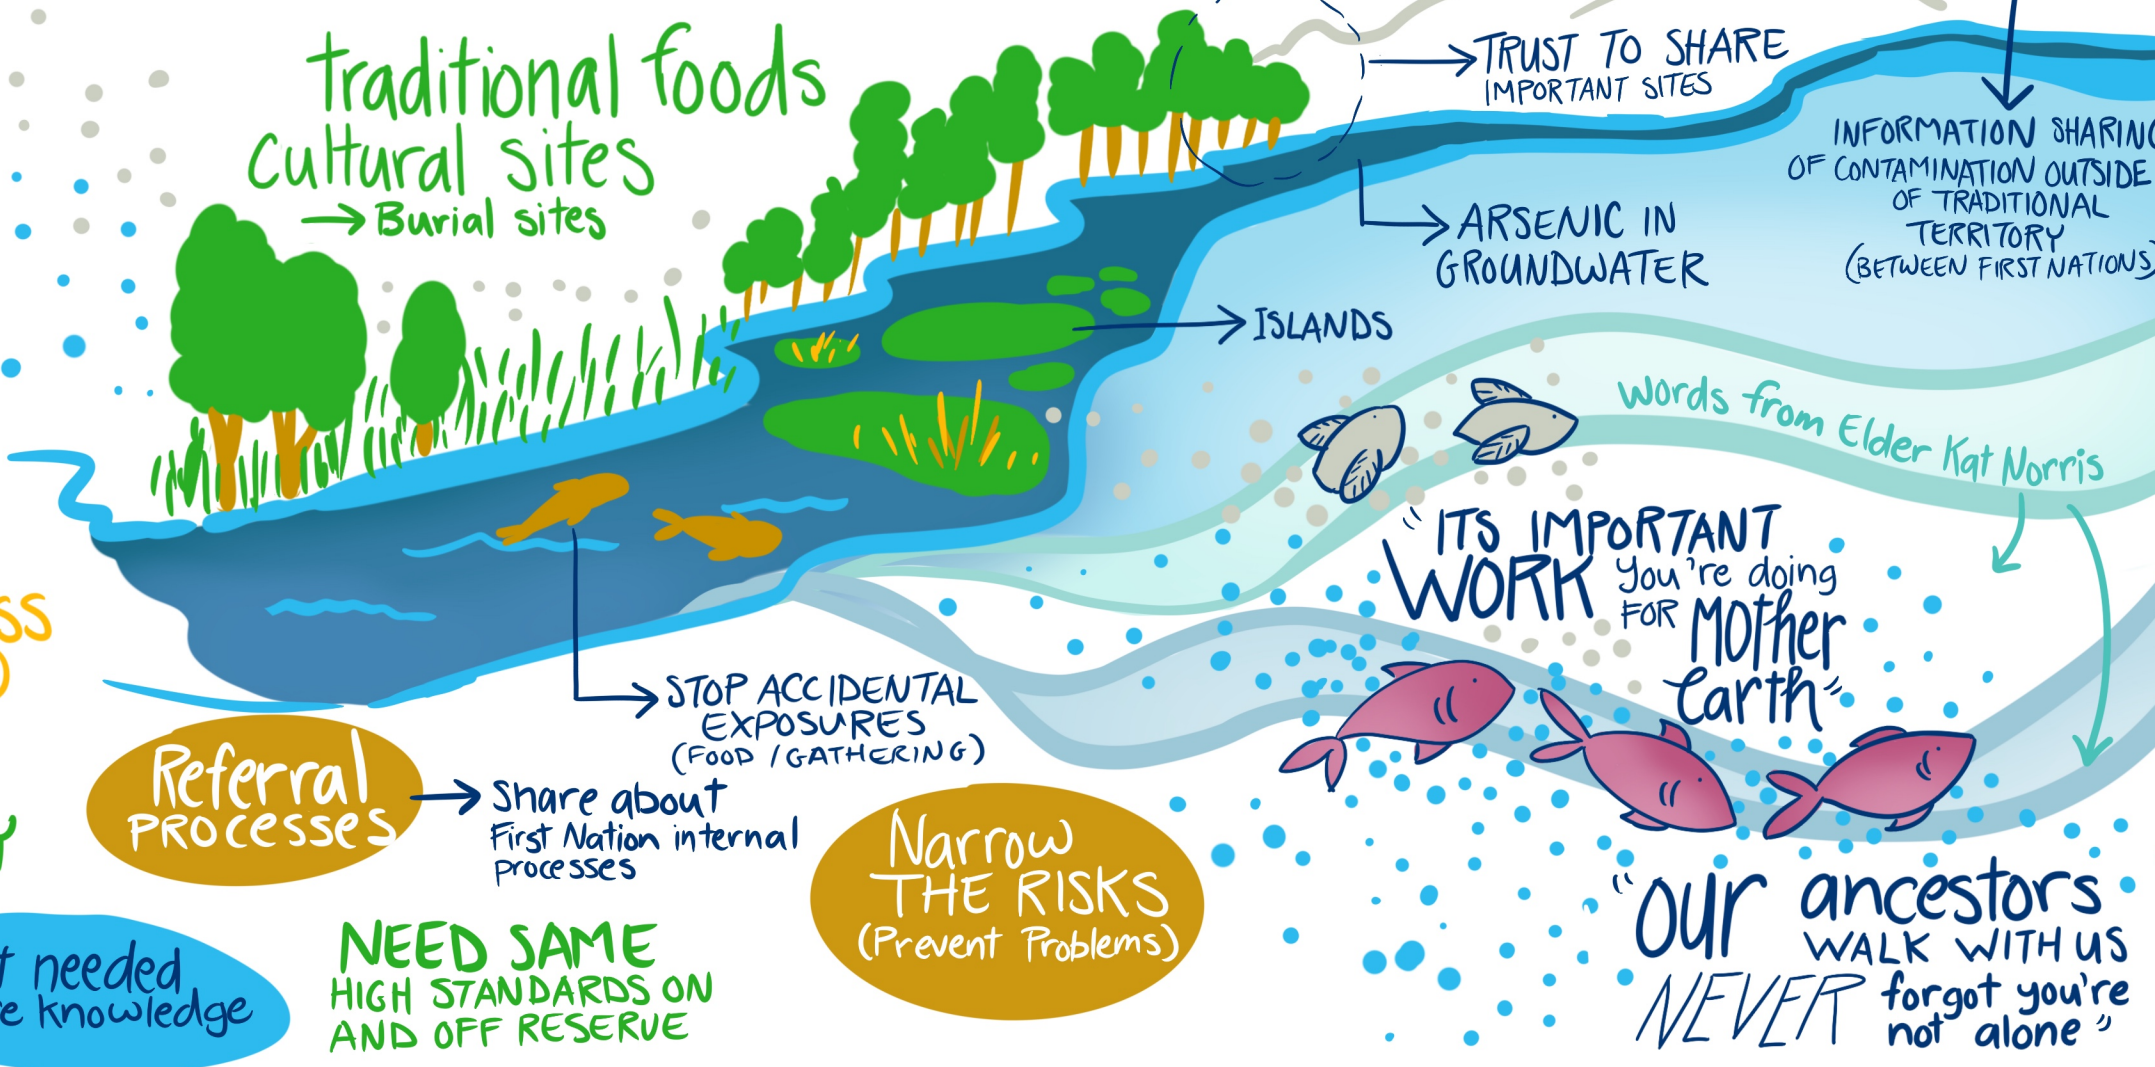 Traditional foods
Cultural sites
→ Burial sites
TRUST TO SHARE
IMPORTANT SITES
INFORMATION SHARING
OF CONTAMINATION OUTSIDE
OF TRADITIONAL
TERRITORY
(BETWEEN FIRST NATIONS)
ARSENIC IN
GROUNDWATER
ISLANDS
Words from Elder Kat Norris
"ITS IMPORTANT
WORK You're doing
FOR MOTHER
Earth"
STOP ACCIDENTAL
EXPOSURES
(FOOD / GATHERING)
Referral
PROCESSES
Share about
First Nation internal
processes
Narrow
THE RISKS
(Prevent Problems)
"our ancestors
WALK WITH US
NEVER forgot you're
not alone"
needed
knowledge
NEED SAME
HIGH STANDARDS ON
AND OFF RESERVE